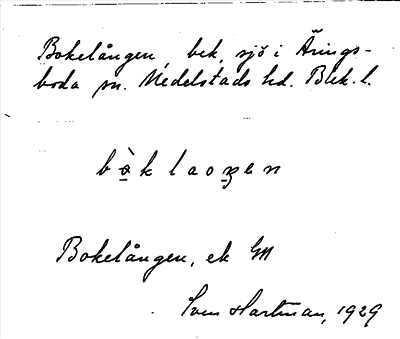 Bokelången, bek, sjö i Ärings-
boda sn. Medelstads hd. Blek. l.
bò̲klaoŋen
Bokelången, ek GM
Sven Hartman, 1929